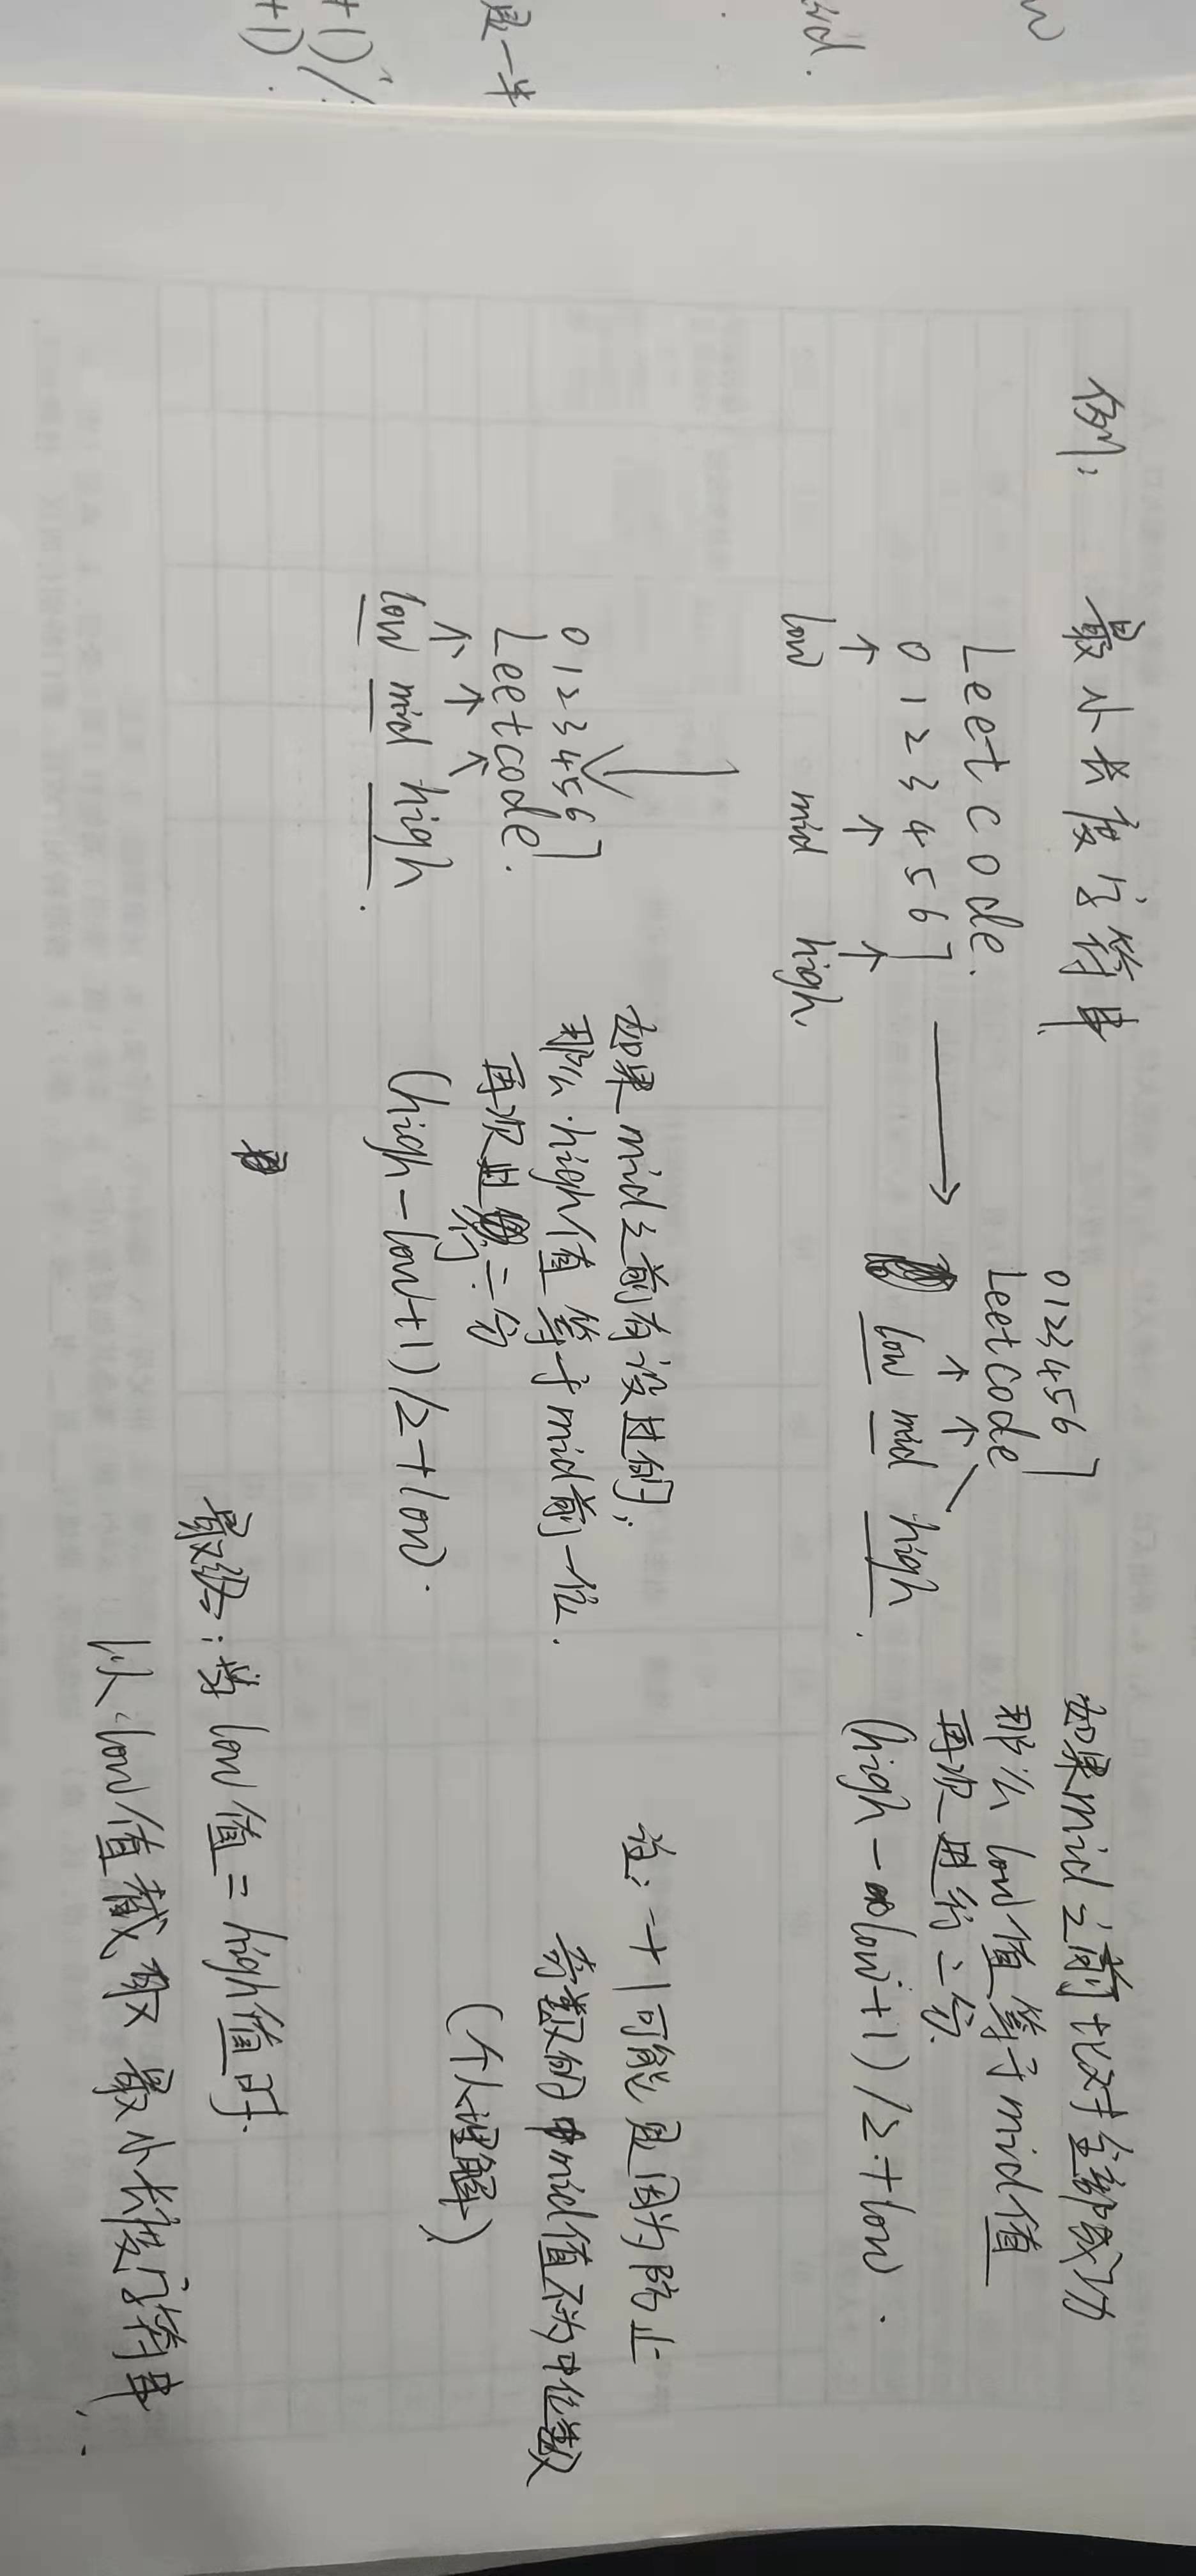 例: 最小长度字符串
Leetcode.
0 1 2 3 4 5 6 7
low mid high.
0 1 2 3 4 5 6 7
Leetcode
low mid high
如果mid之前比对全部成功
那么 low值等于mid值
再次进行二分.
(high-low+1)/2+low
0 1 2 3 4 5 6 7
Leetcode.
low mid high
如果mid之前有没过的,
那么high值等于mid前一位.
再次进行二分
(high-low+1)/2+low.
注: +1可能是因为防止
奇数的mid值不为中位数
(个人理解)
最终: 当low值=high值时.
以low值截取最小长度字符串.
w
id.
是一半
+1)/
+1).